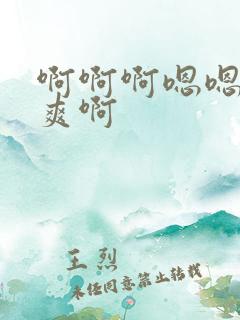 啊啊啊嗯嗯
爽啊
王烈
未经同意禁止转载